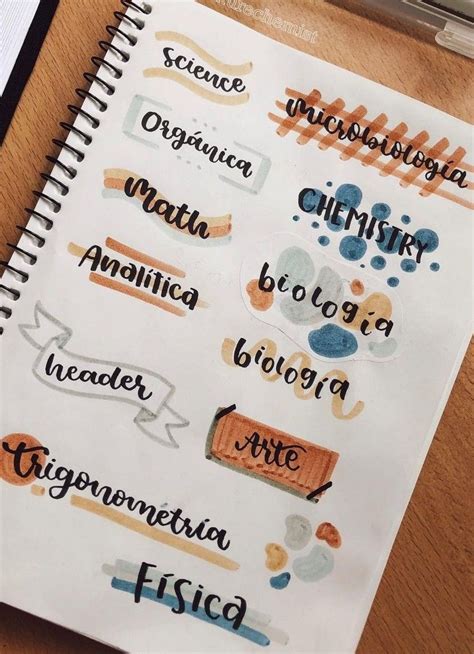 Science
Microbiología
Orgánica
CHEMISTRY
Math
Analítica
biología
header
biología
Arte
Trigonométría
Física